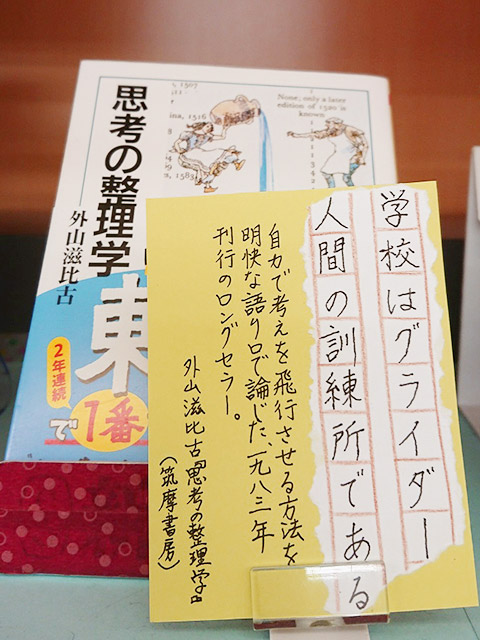 1507
None, only a later
edition of 1520 is
known
1516
1583
思考の整理学
外山滋比古
東
2年連続
1番
で
学校はグライダー
人間の訓練所である
自力で考えを飛行させる方法を
明快な語り口で論じた、一九八三年
刊行のロングセラー。
外山滋比古『思考の整理学』
(筑摩書房)